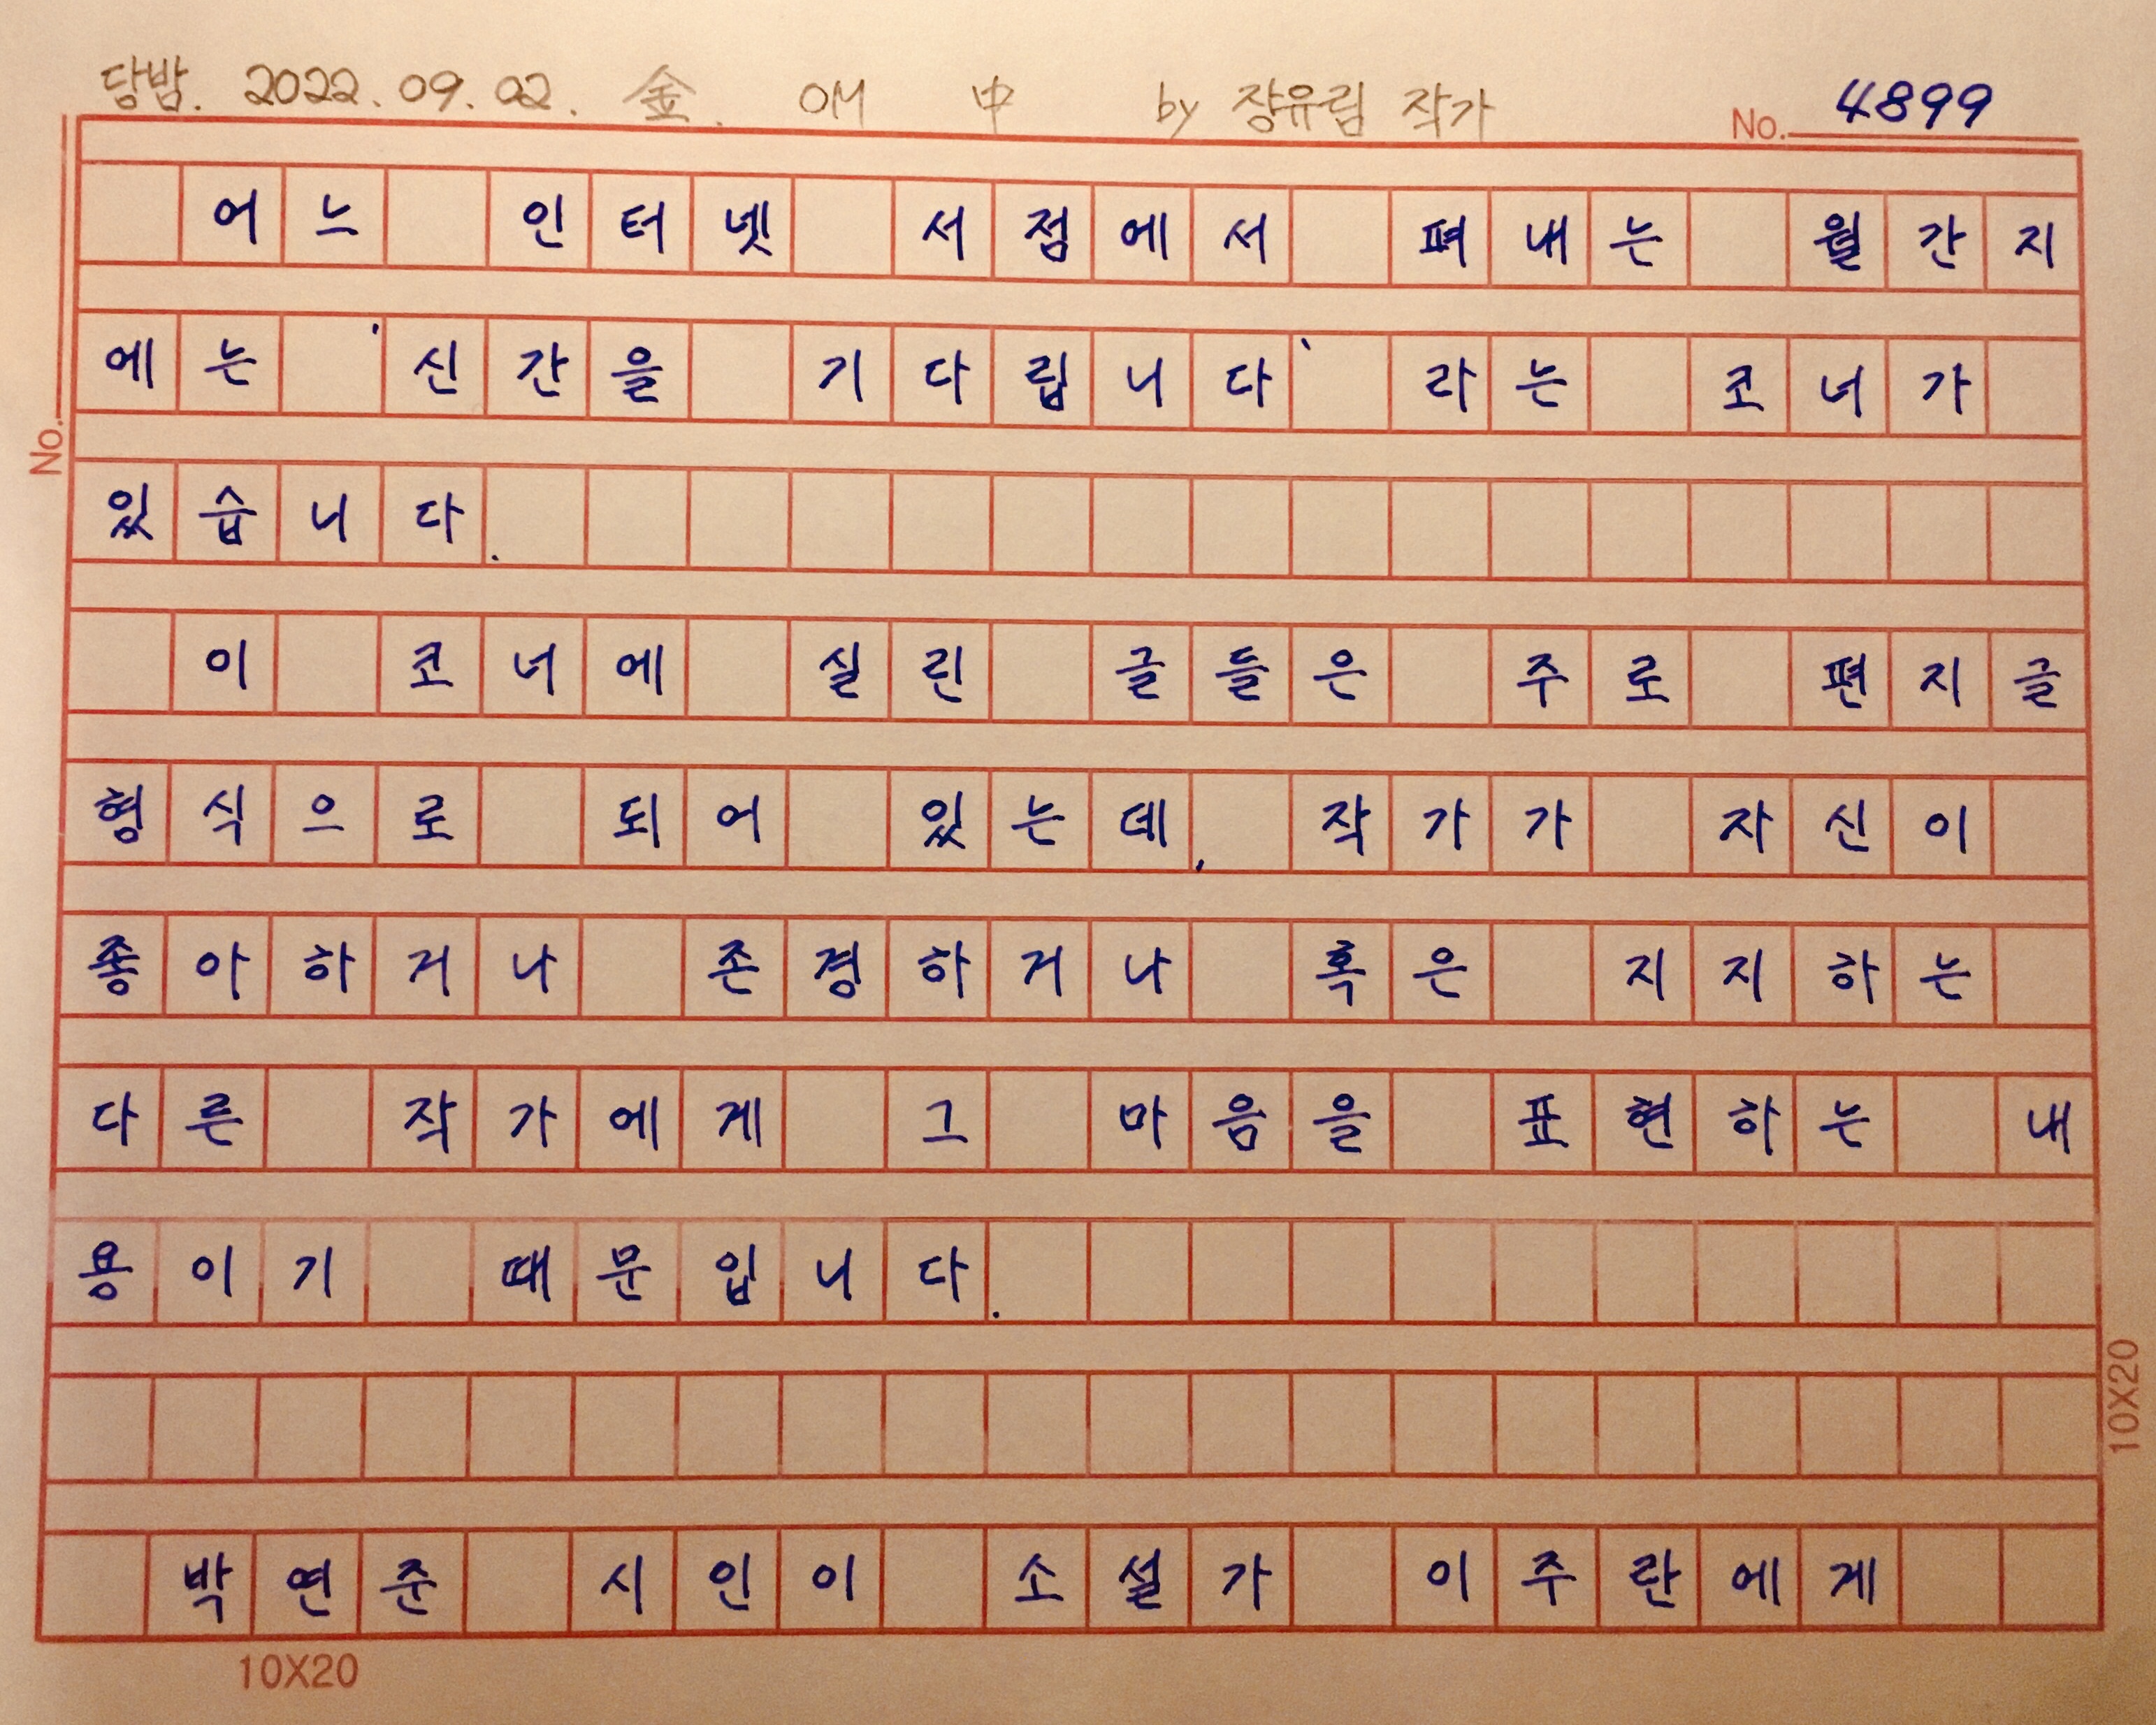 당밤. 2022. 09. 02. 金. OM 中 by 장유림 작가 No. 4899
어느 인터넷 서점에서 펴내는 월간지
에는 '신간을 기다립니다' 라는 코너가
있습니다.
이 코너에 실린 글들은 주로 편지글
형식으로 되어 있는데, 작가가 자신이
좋아하거나 존경하거나 혹은 지지하는
다른 작가에게 그 마음을 표현하는 내
용이기 때문입니다.
박연준 시인이 소설가 이주란에게
10X20
No.
10X20